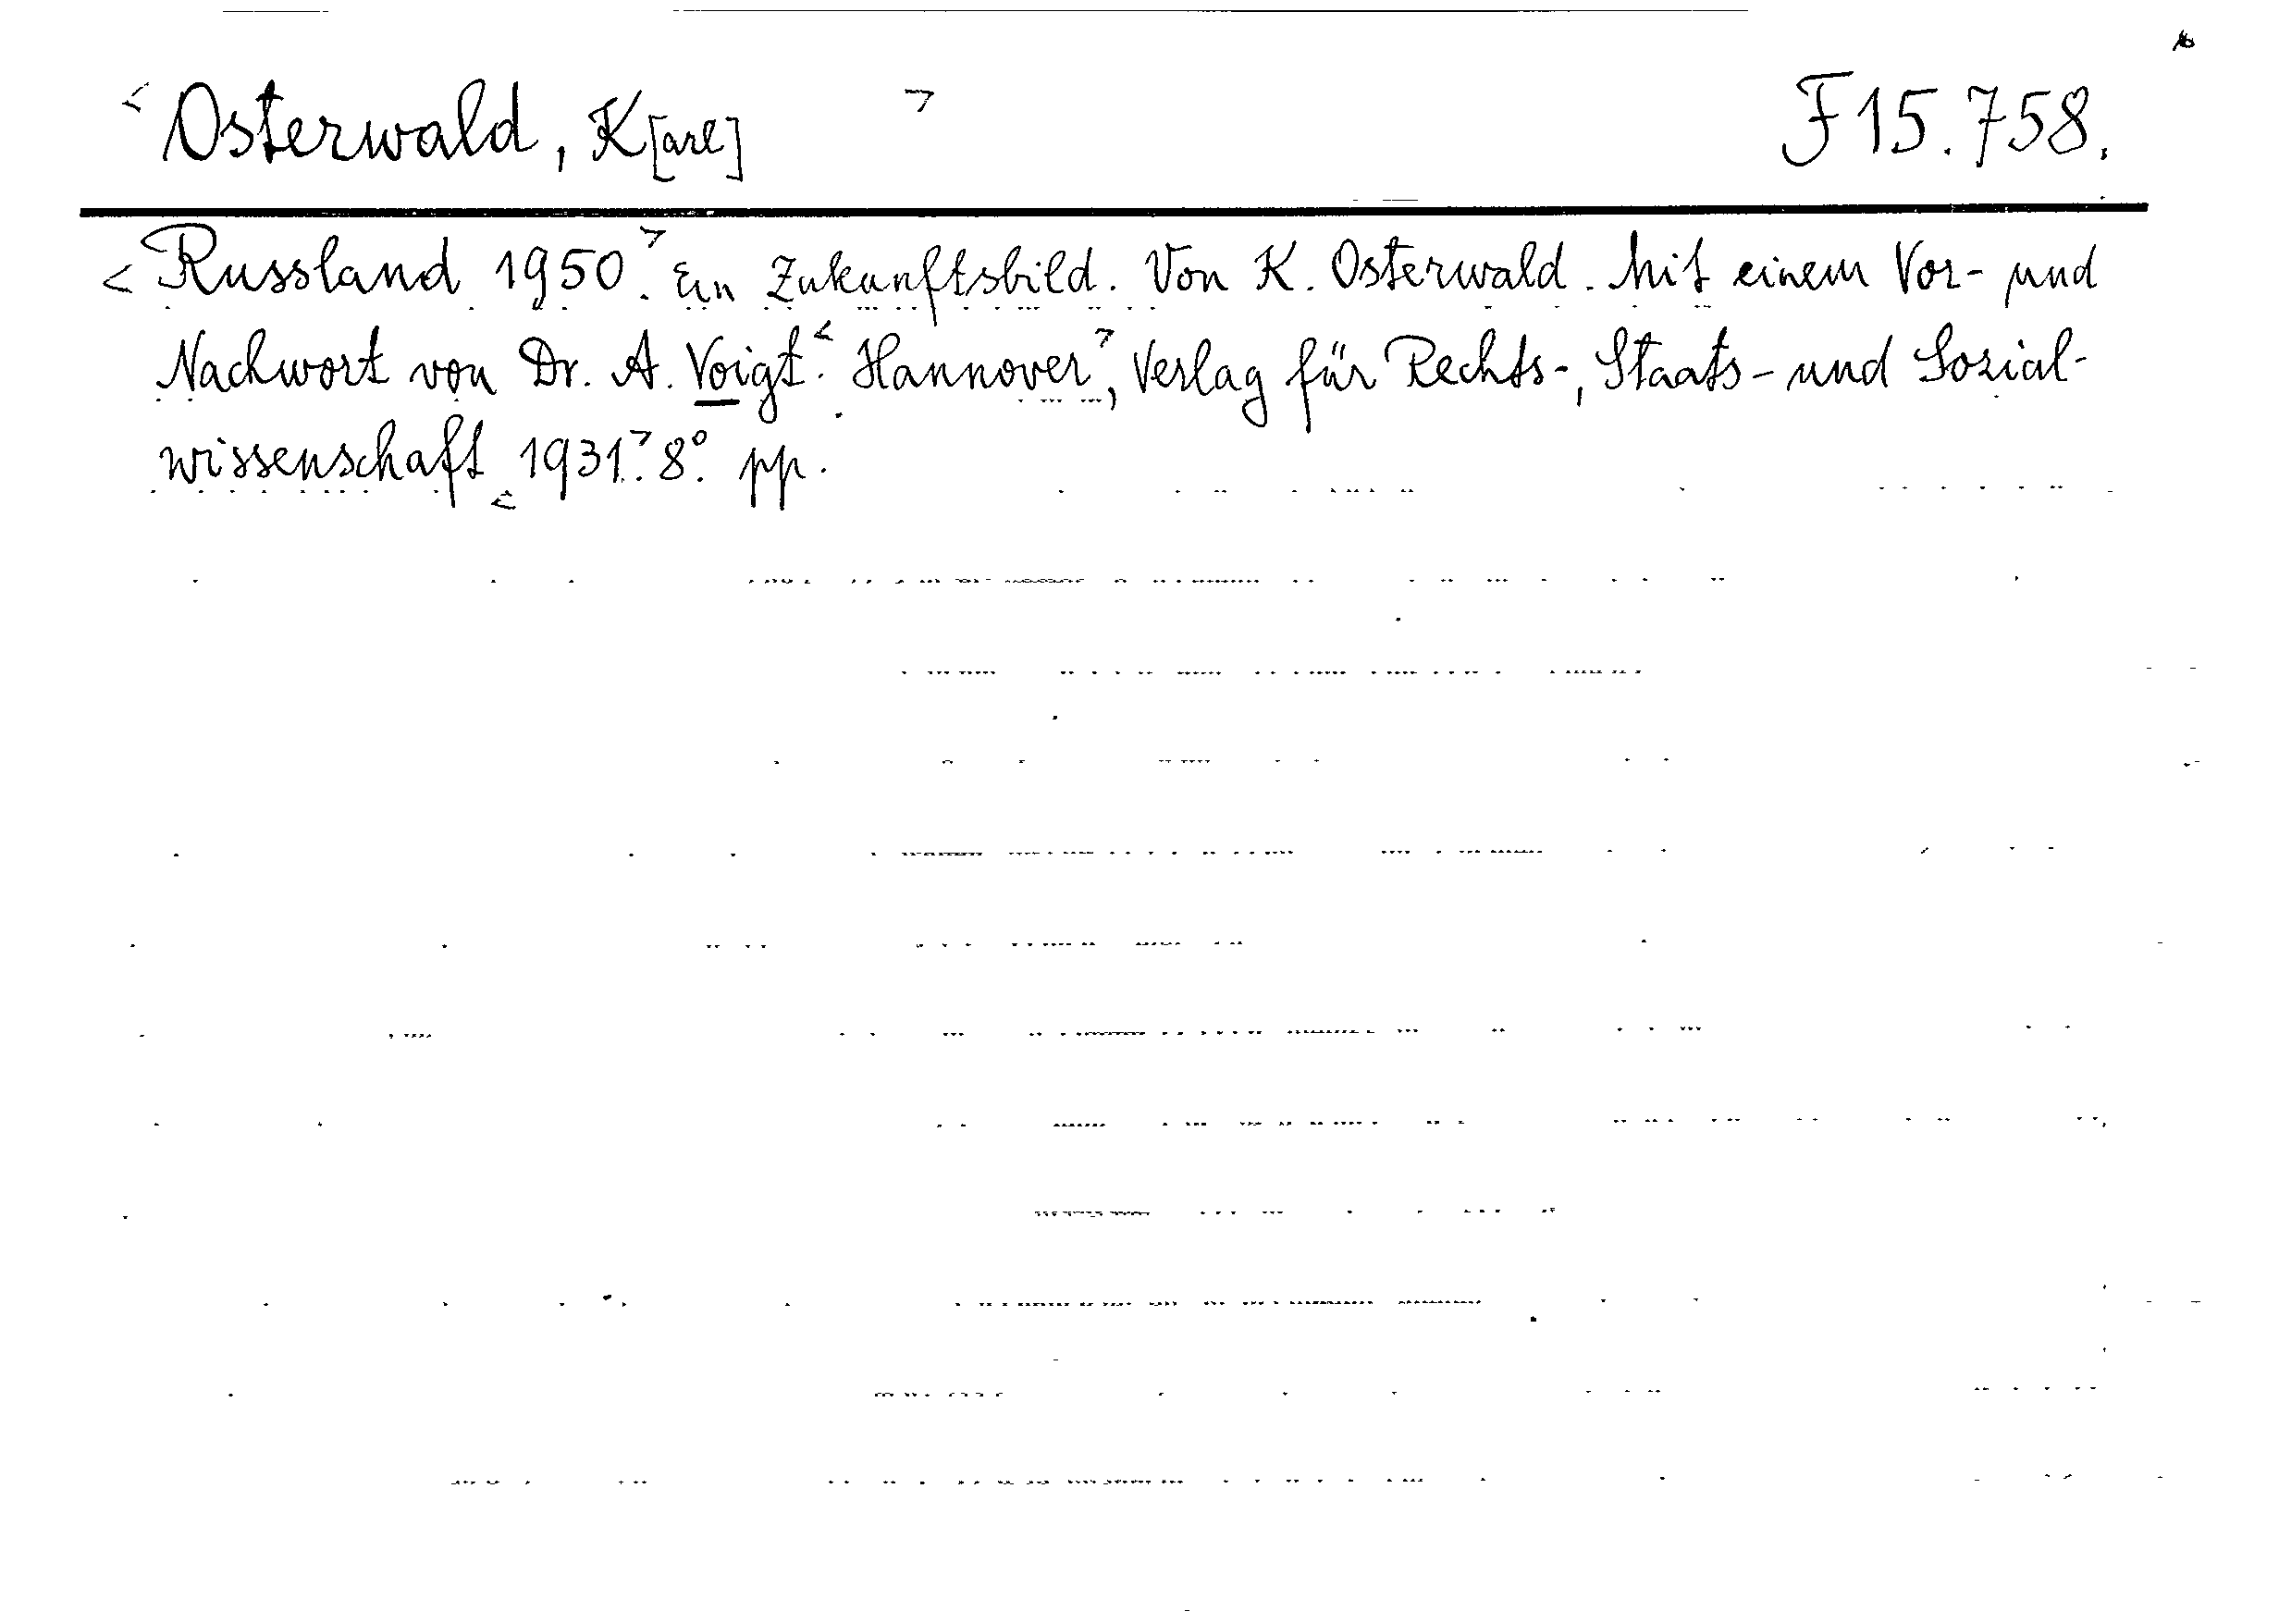 < Osterwald, K[arl] > F 15.758.
< Russland 1950.> Ein Zukunftsbild. Von K. Osterwald. Mit einem Vor- und
Nachwort von Dr. A. Voigt. < Hannover >, Verlag für Rechts-, Staats- und Sozial-
wissenschaft < 1931.> 8°. pp.